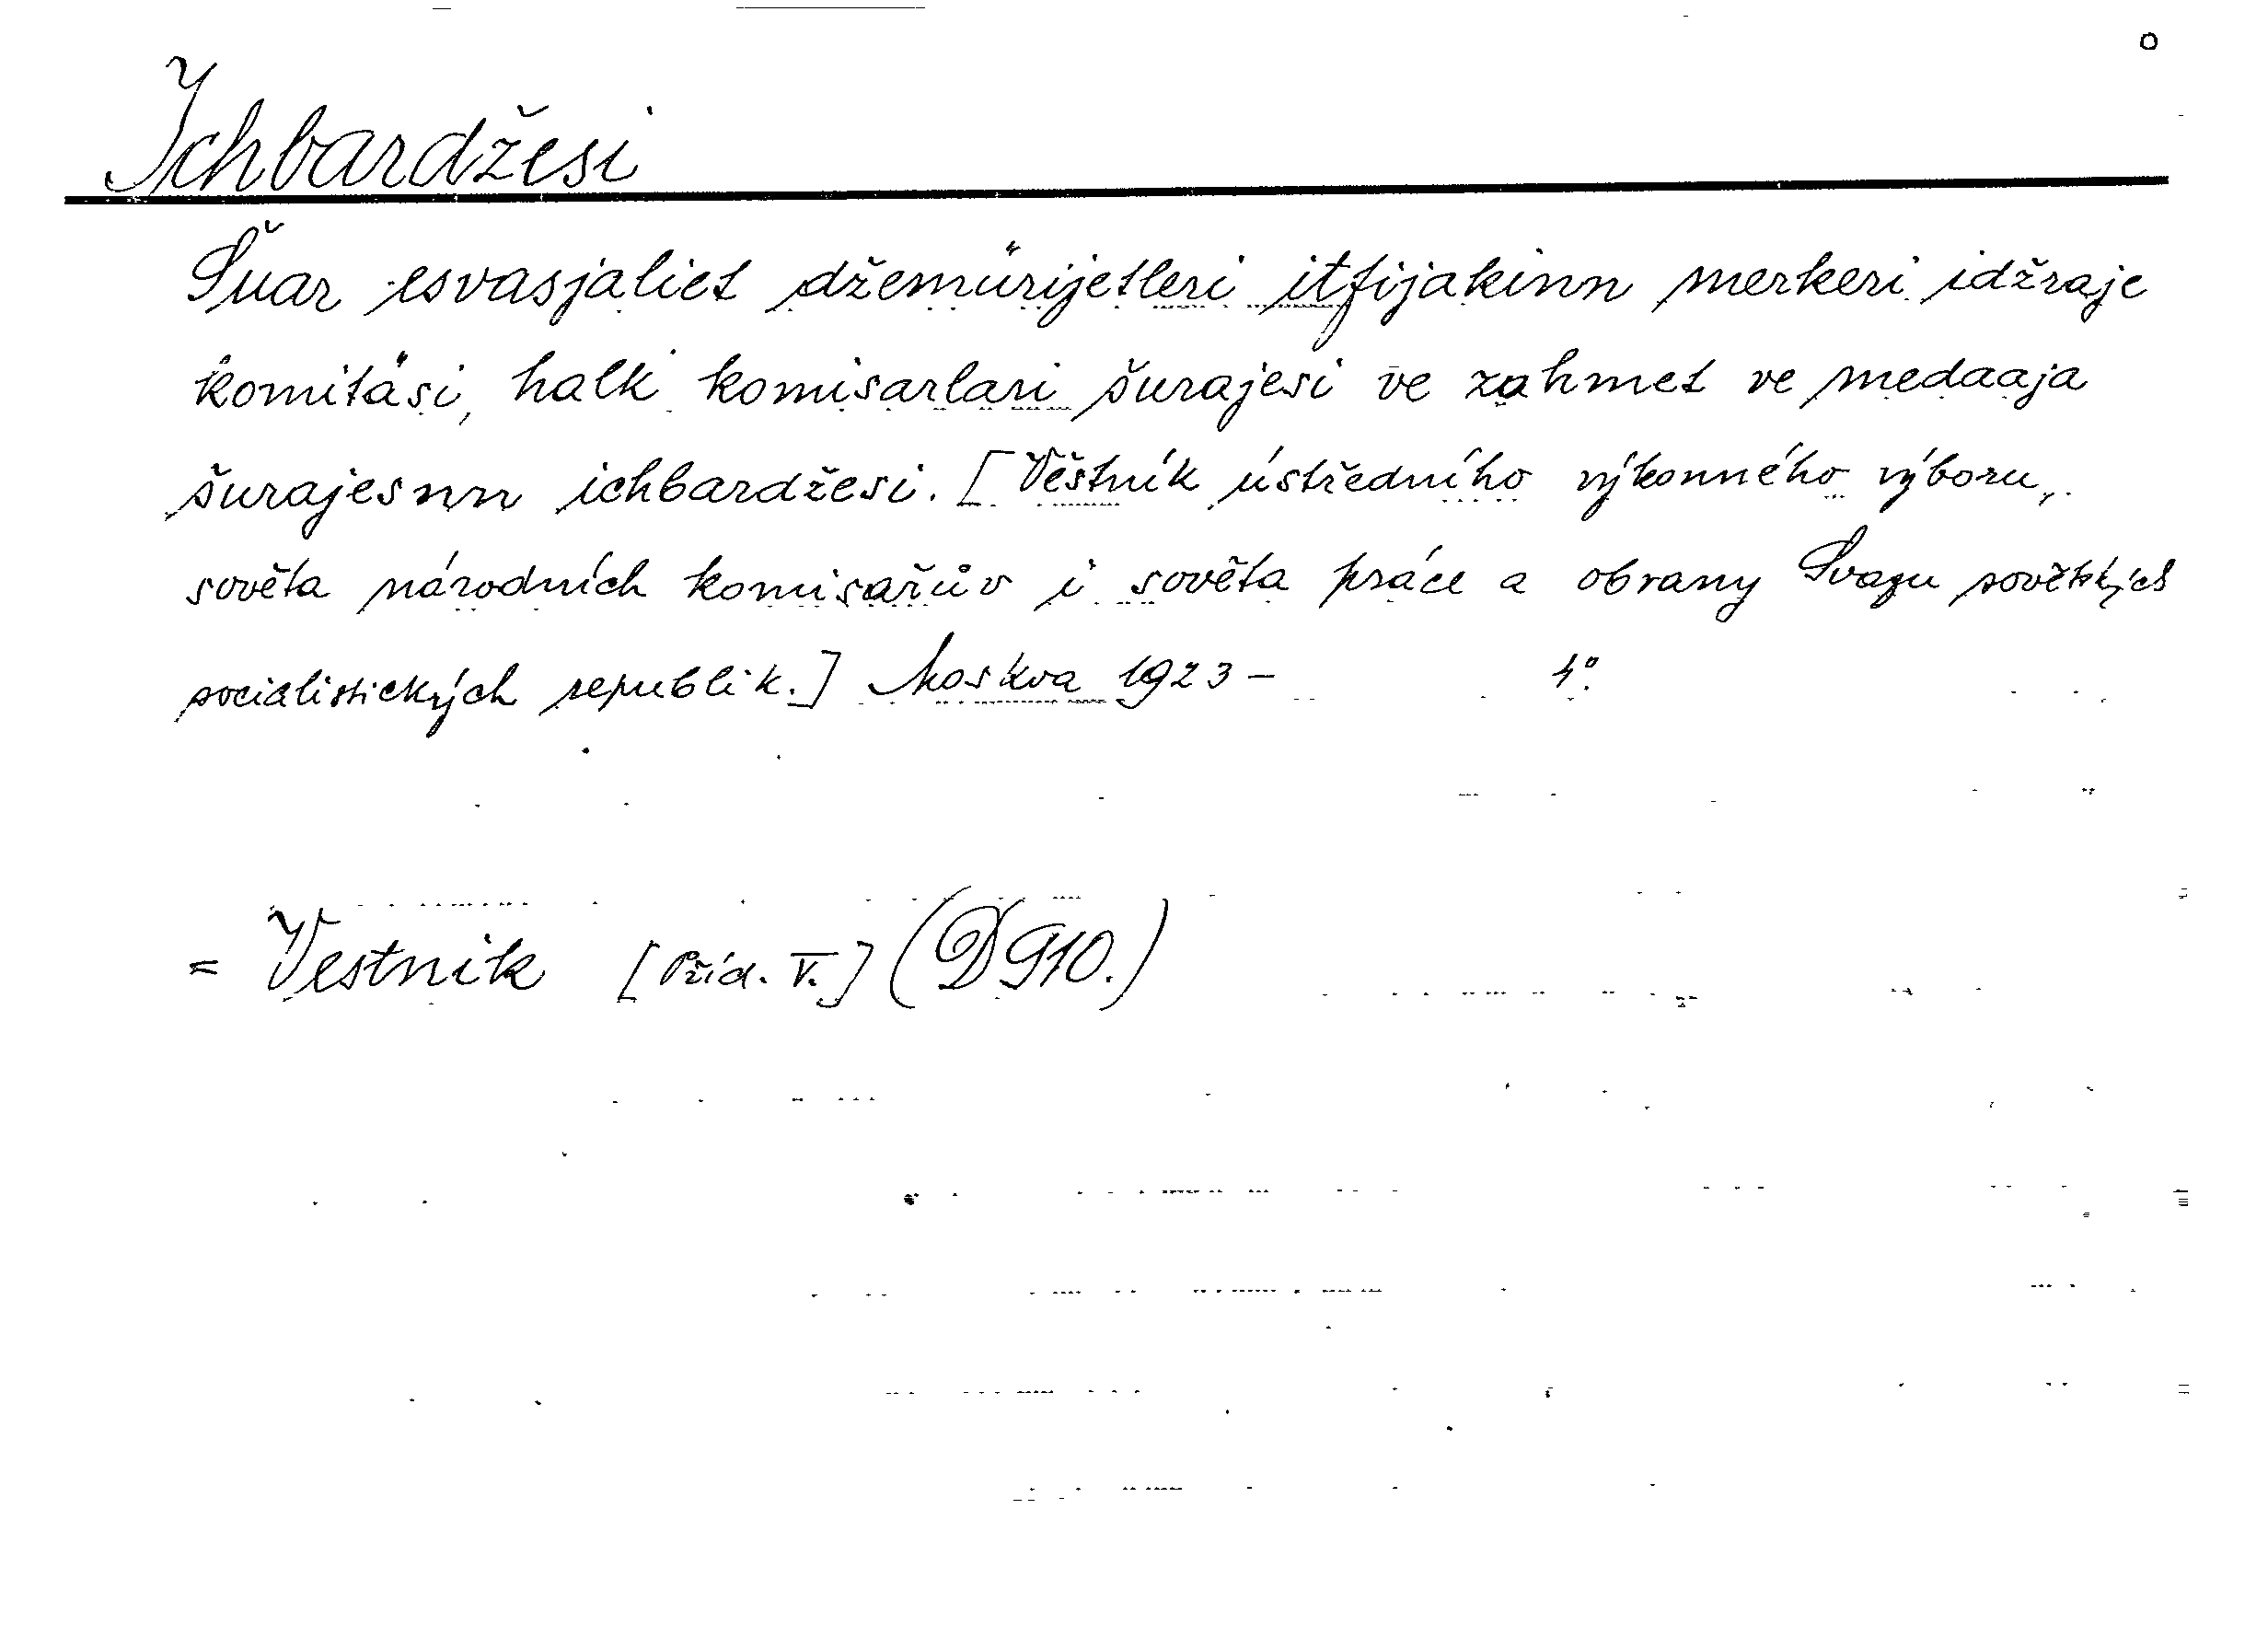 Ichbardžesi
Šuar esvasjaliet džemürijetleri itfijakinn merkeri idžraje
komitäsi, halk komisarlari šurajesi ve zahmet ve medaaja
šurajesnn ichbardžesi. [Věstník ústředního výkonného výboru,
sověta národních komisařův i sověta práce a obrany Svazu sovětských
socialistických republik.] Moskva 1923 – 4°.
= Vestnik [Příd. V.] (D 910.)